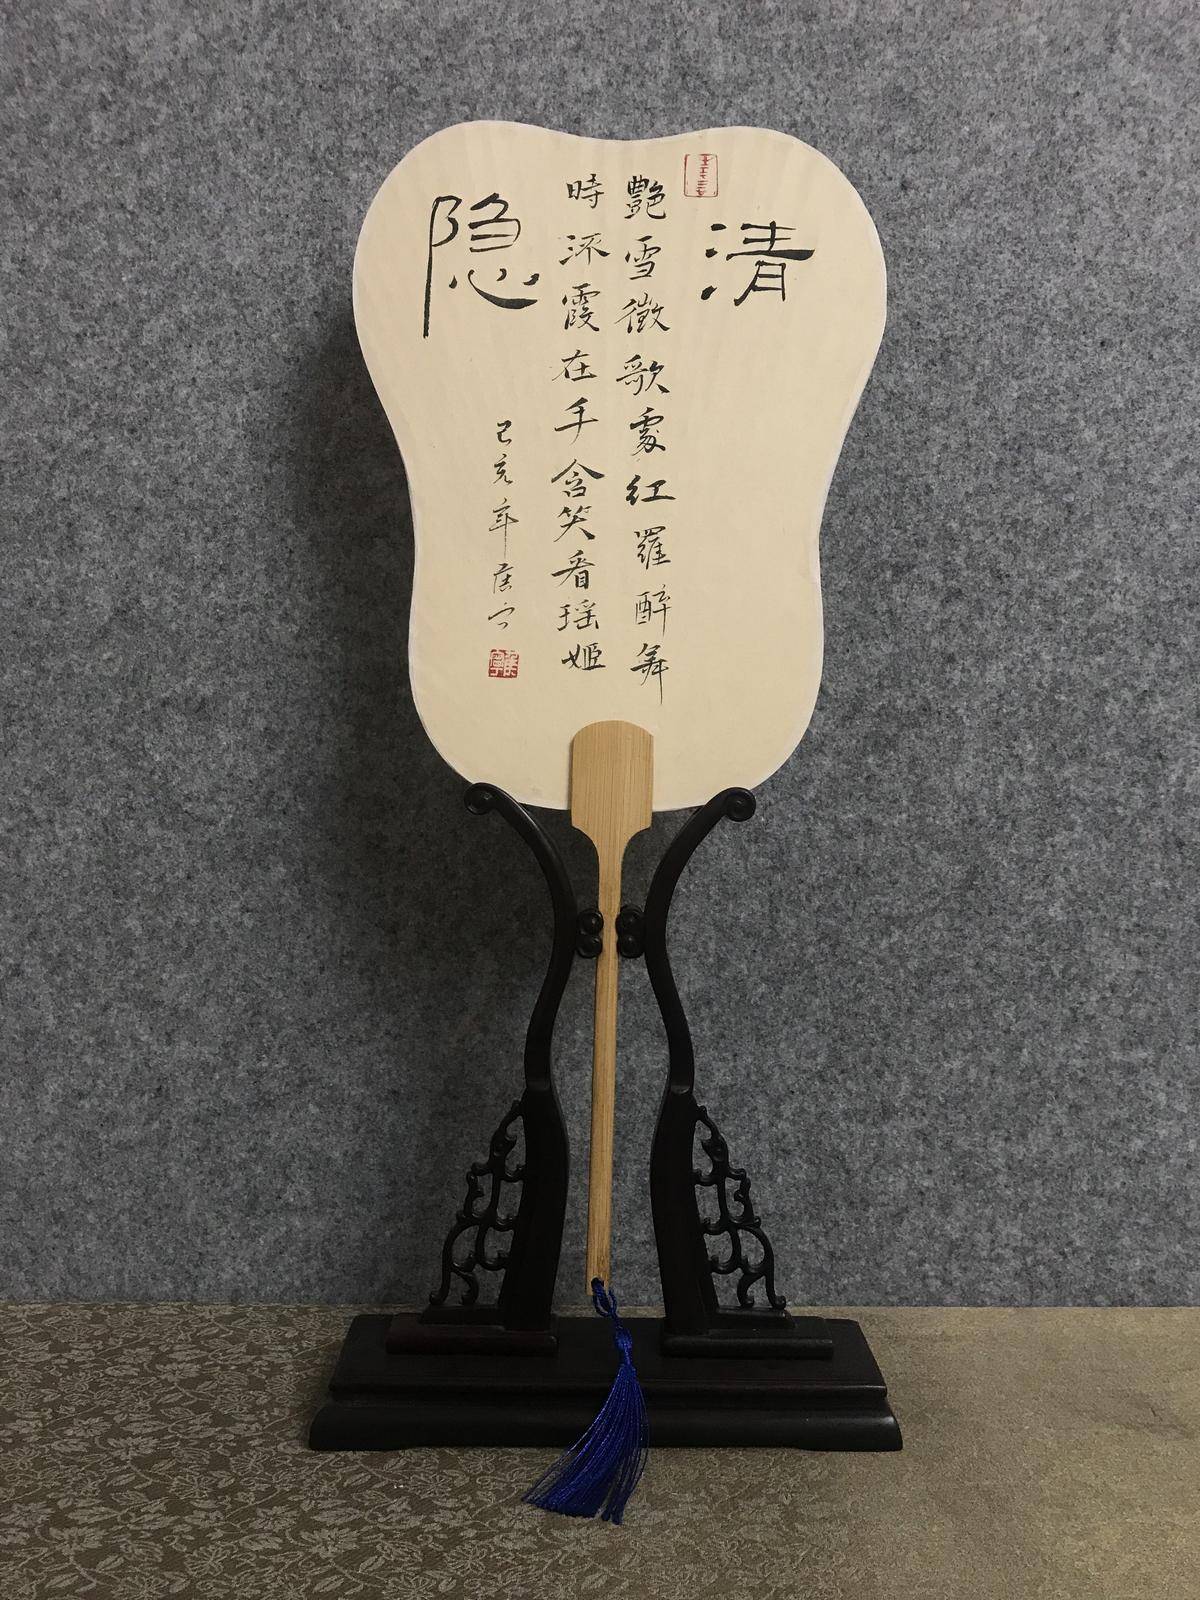 清隐
艷雪徵歌處紅羅醉舞
時流霞在手含笑看瑶姬
己亥年侯宁